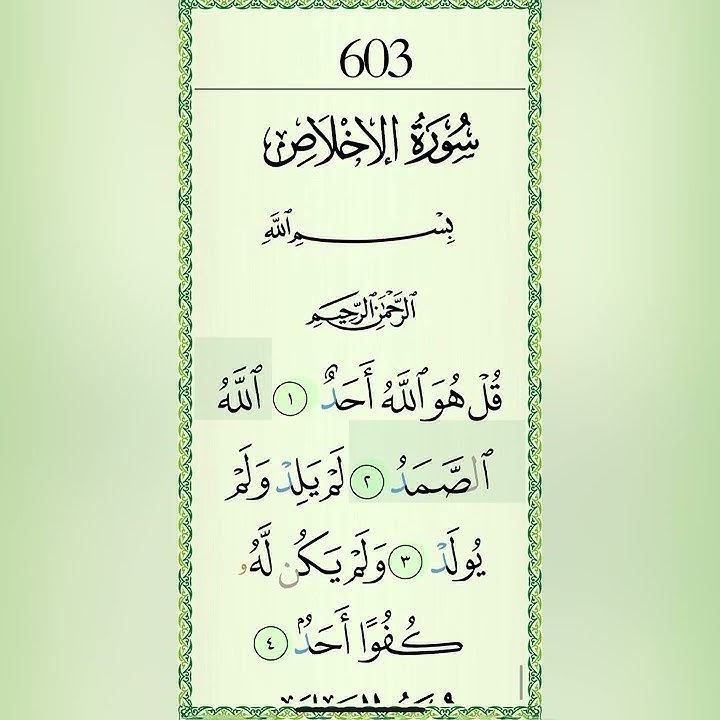 603
سُورَةُ الإِخْلَاصِ
بِسْمِ ٱللَّهِ
ٱلرَّحْمَٰنِ ٱلرَّحِيمِ
قُلْ هُوَ ٱللَّهُ أَحَدٌ ١ ٱللَّهُ
ٱلصَّمَدُ ٢ لَمْ يَلِدْ وَلَمْ
يُولَدْ ٣ وَلَمْ يَكُن لَّهُۥ
كُفُوًا أَحَدٌۢ ٤